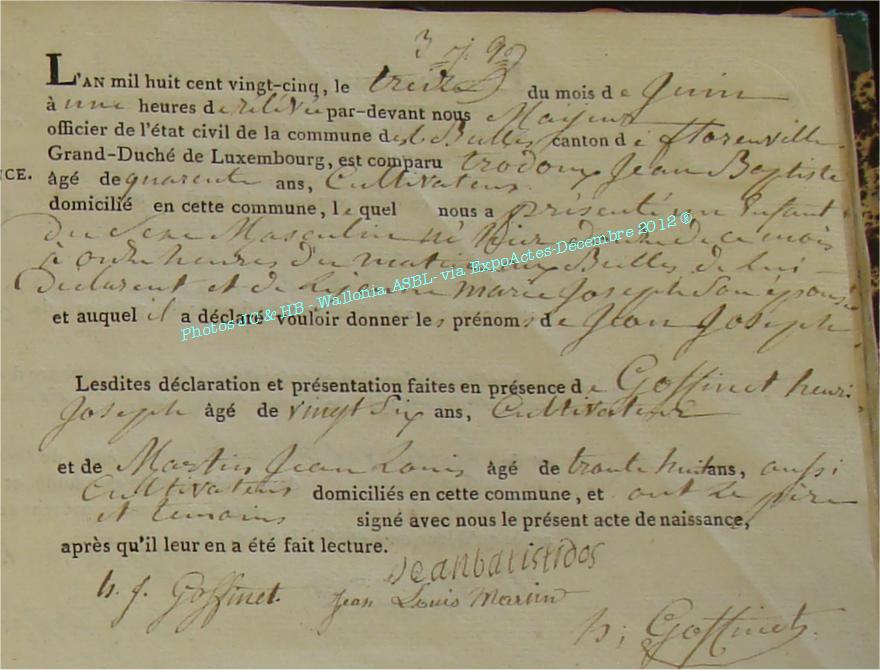 L'AN mil huit cent vingt-cinq, le treize du mois de Juin
à une heures de relevée par-devant nous Mayeur
officier de l'état civil de la commune des Bulles canton de florenville
Grand-Duché de Luxembourg, est comparu trodoux Jean Baptiste
NCE. âgé de quarente ans, Cultivateur
domicilié en cette commune, le quel nous a présenté un Enfant
du Sexe Masculin né hier douze de ce mois
à onze heures du matin aux Bulles, de lui
Declarent et de marie Joseph Son épouse
et auquel il a déclaré vouloir donner les prénoms de Jean Joseph
Lesdites déclaration et présentation faites en présence de Goffinet henri
Joseph âgé de vingt Six ans, Cultivateur
et de Martin Jean Louis âgé de trente huit ans, aussi
Cultivateur domiciliés en cette commune, et ont le père
et temoins signé avec nous le présent acte de naissance,
après qu'il leur en a été fait lecture.
Jeanbatist
h. j. Goffinet. Jean Louis Martin
h, Goffinet
Photos JC & HB - Wallonia ASBL- via ExpoActes-Décembre 2012 ®